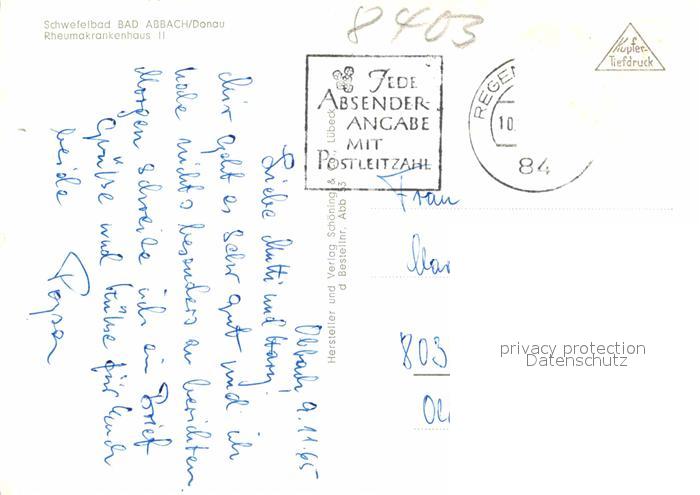 Schwefelbad BAD ABBACH/Donau
Rheumakrankenhaus II
8403
Kupfer-
Tiefdruck
JEDE
ABSENDER-
ANGABE
MIT
POSTLEITZAHL
REGEN
10.
84
Hersteller und Verlag Schöning & Co., Lübeck
Bestellnr. Abb 53
Abbach, 9.11.65
Liebe Mutti und Harry
Mir geht es sehr gut und ich
habe nichts besonders zu berichten.
Morgen schreibe ich ein Brief
Grüße und Küsse für Euch
beide
Frau
803
privacy protection
Datenschutz